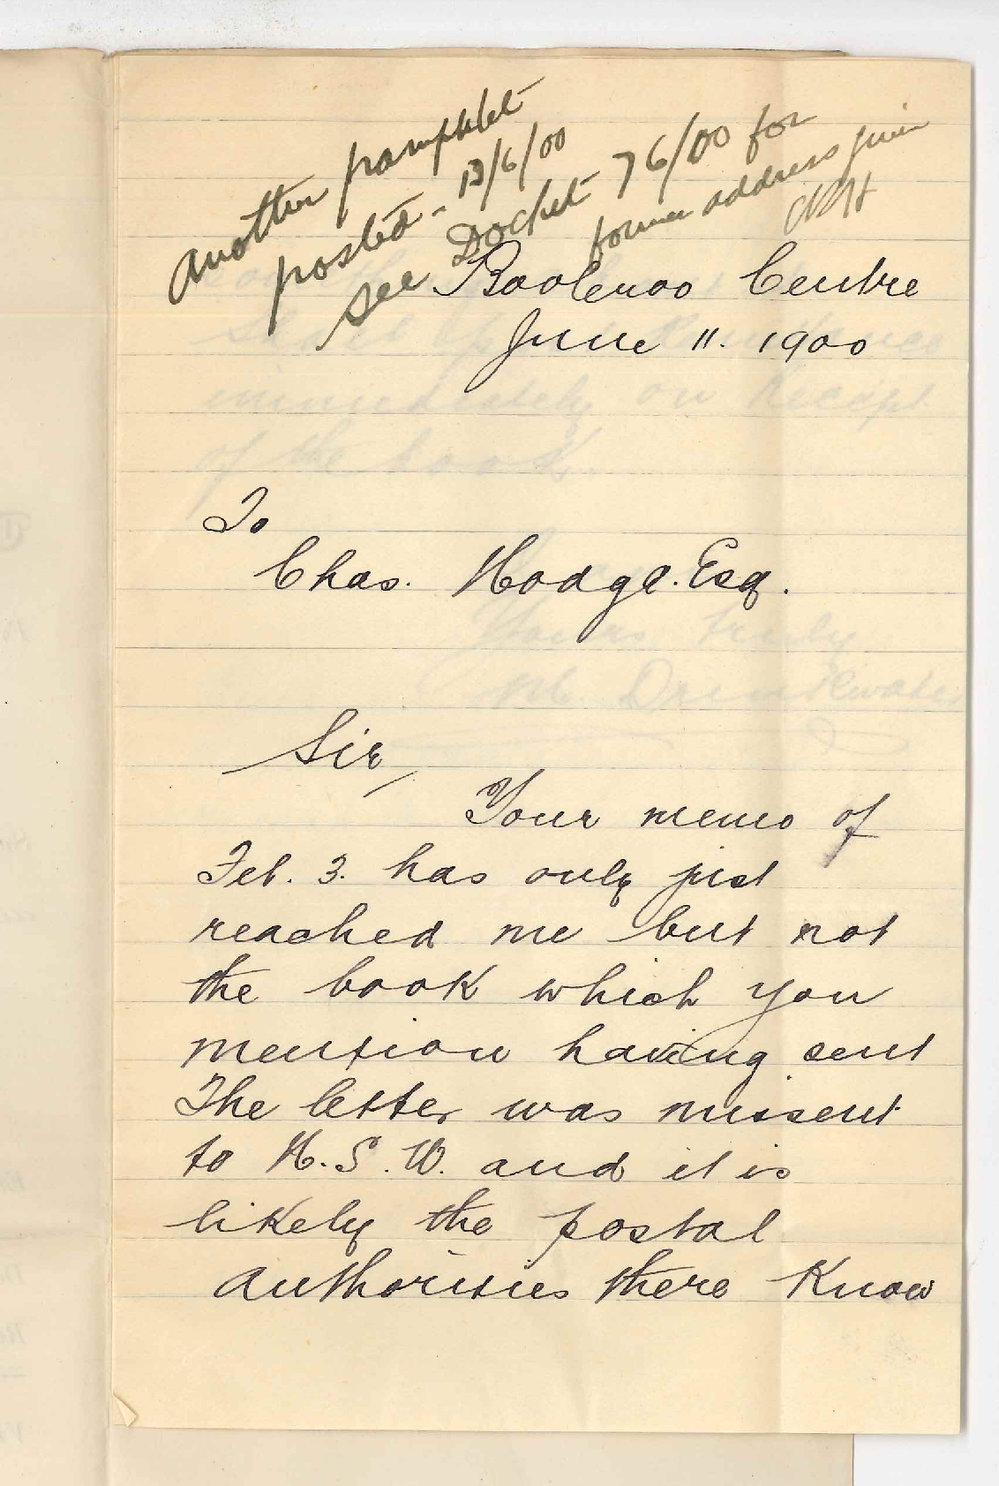 another pamphlet
posted - 13/6/00
See Docket 76/00 for
former address given
Booleroo Centre
June 11. 1900
To
Chas. Hodge. Esq.
Sir,
Your memo of
Feb. 3. has only just
reached me but not
the book which you
mention having sent
The letter was missent
to N.S.W. and it is
likely the postal
authorities there know
immediately on Receipt
of the book.
Yours truly
Drinkwater